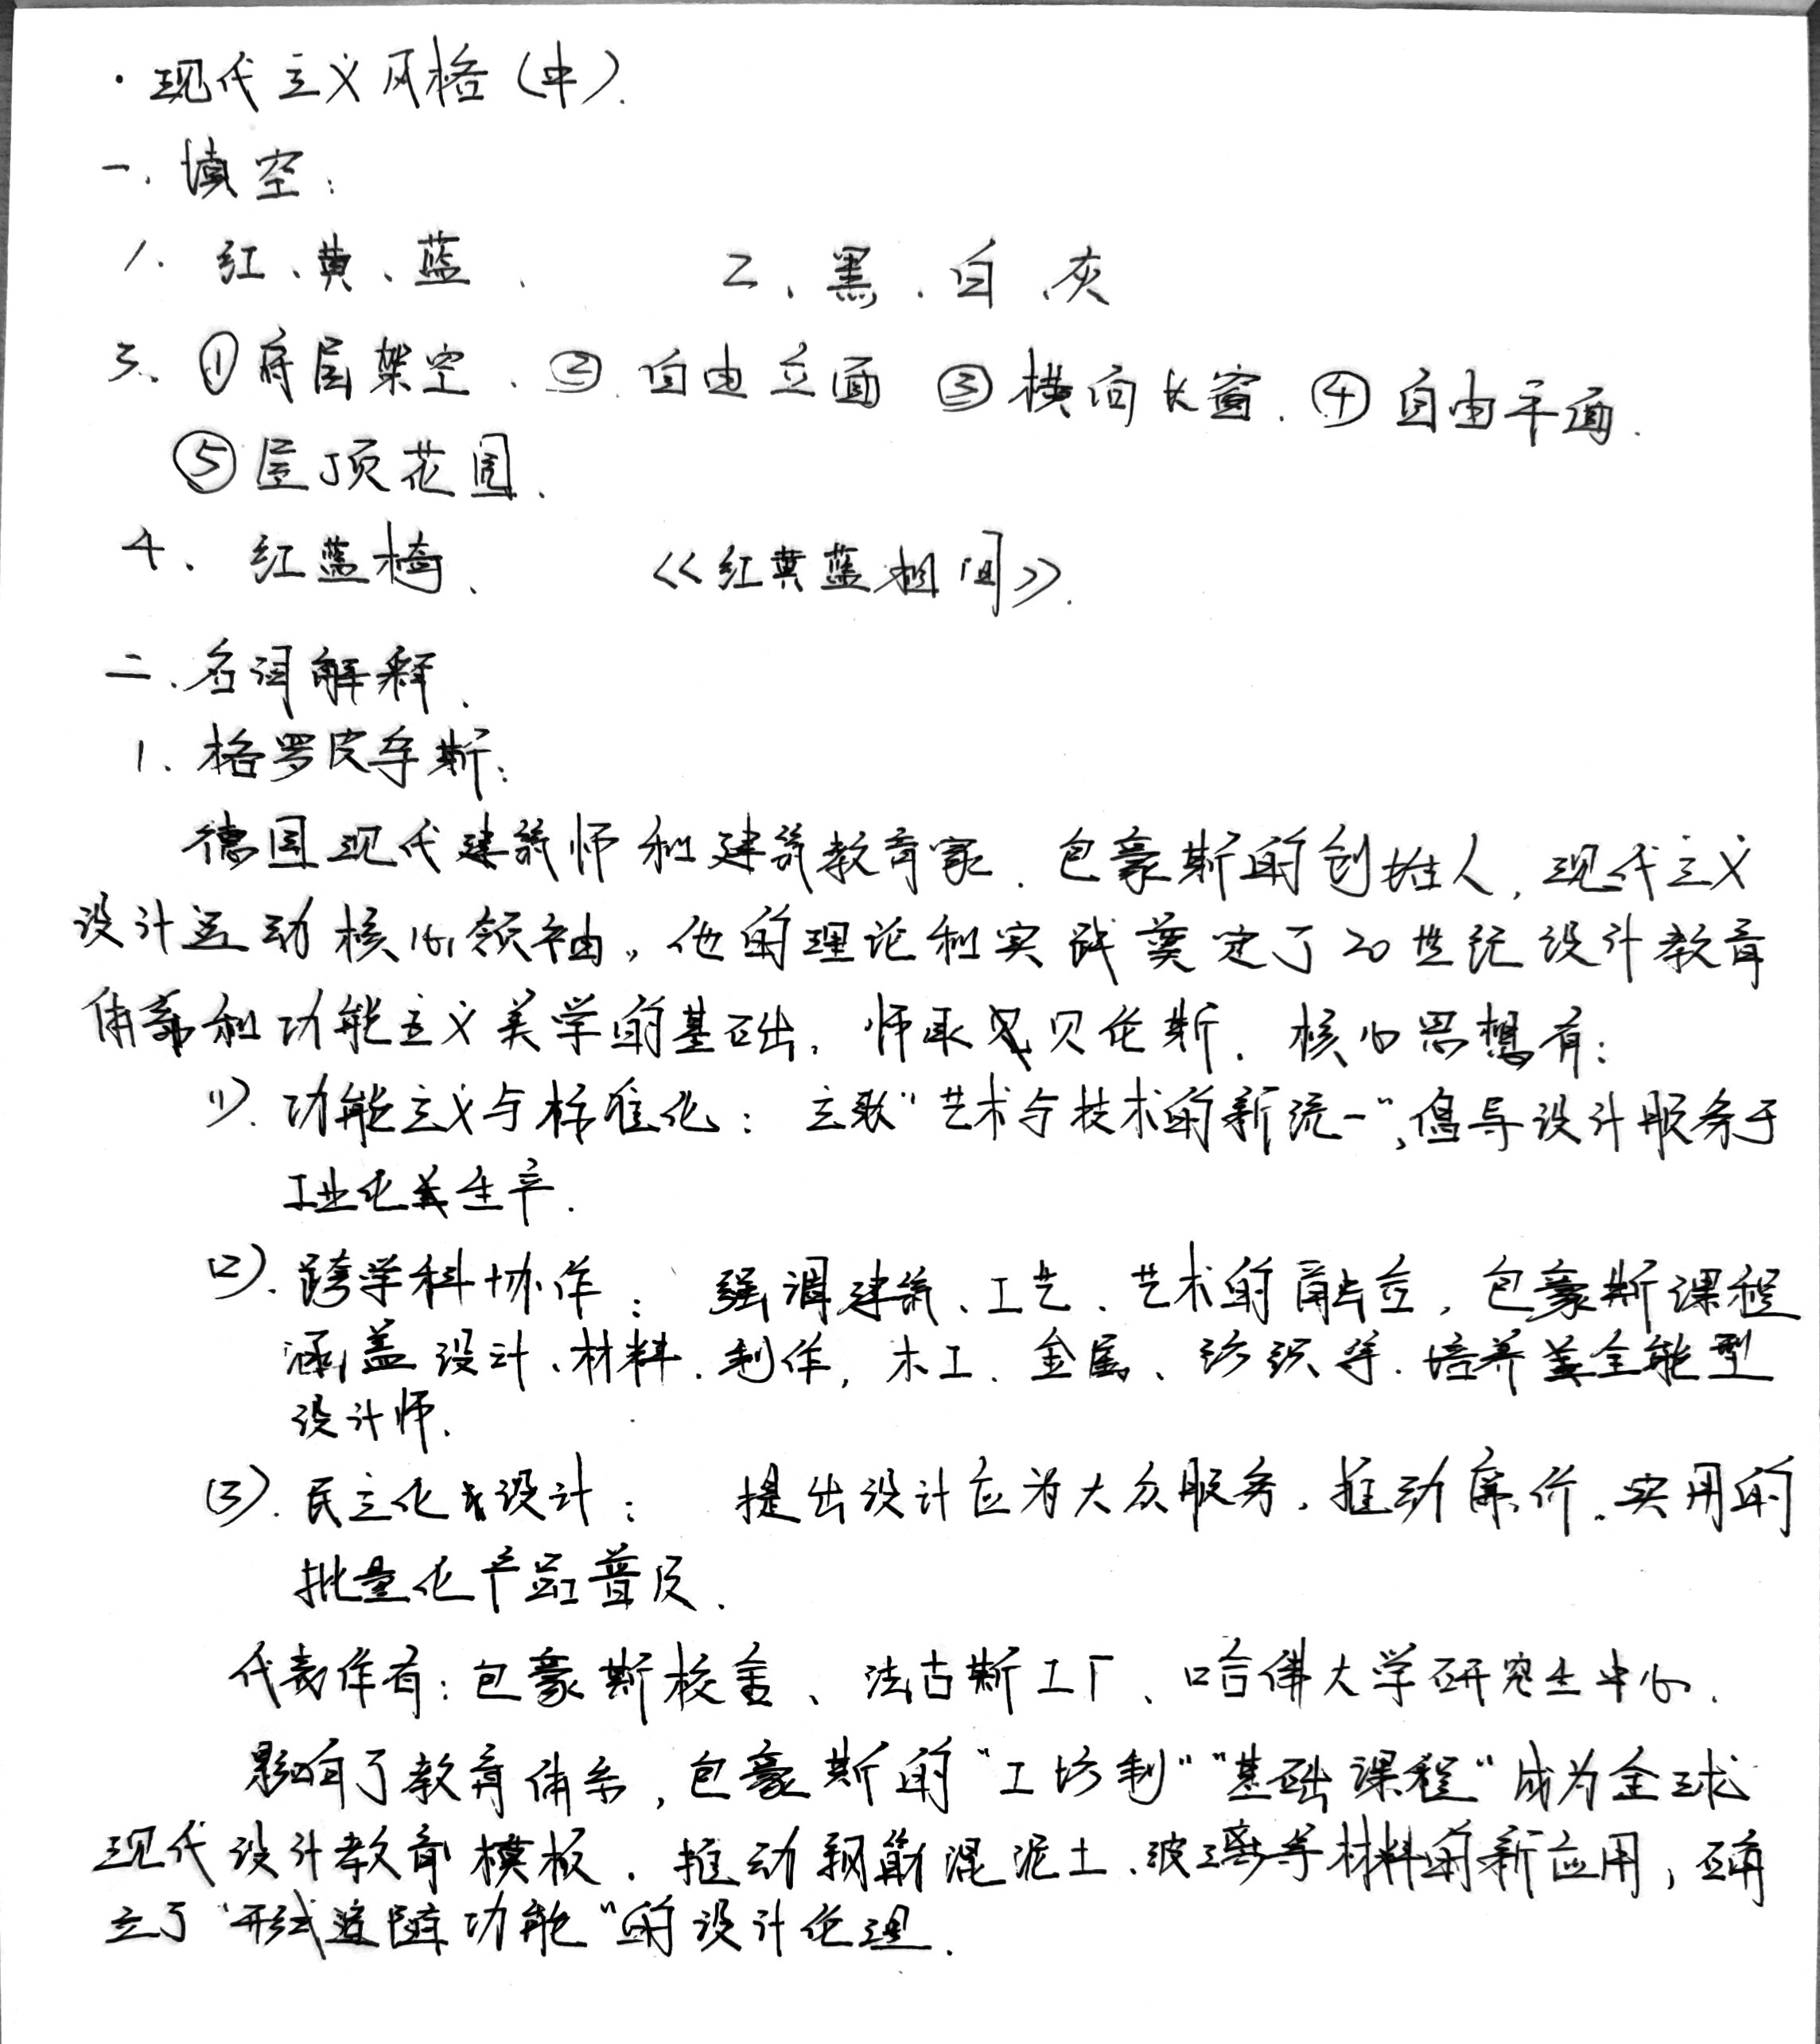 ·现代主义风格(中).
一、填空:
1. 红、黄、蓝、 2、黑、白、灰
3、①底层架空、②自由立面 ③横向长窗. ④自由平面.
⑤屋顶花园.
4、红蓝椅、 《红黄蓝相间》.
二、名词解释.
1、格罗皮乌斯:
德国现代建筑师和建筑教育家.包豪斯的创始人,现代主义
设计运动核心领袖。他的理论和实践奠定了20世纪设计教育
体系和功能主义美学的基础.师承贝伦斯.核心思想有:
(1).功能主义与标准化:主张"艺术与技术的新统一",倡导设计服务于
工业化生产.
(2).跨学科协作:强调建筑、工艺、艺术的融合,包豪斯课程
涵盖设计、材料、制作,木工、金属、纺织等.培养全能型
设计师.
(3).民主化设计:提出设计应为大众服务,推动廉价、实用的
批量化产品普及.
代表作有:包豪斯校舍、法古斯工厂、哈佛大学研究生中心.
影响了教育体系,包豪斯的"工坊制""基础课程"成为全球
现代设计教育模板.推动钢筋混泥土、玻璃等材料的新应用,确
立了"形式追随功能"的设计伦理.